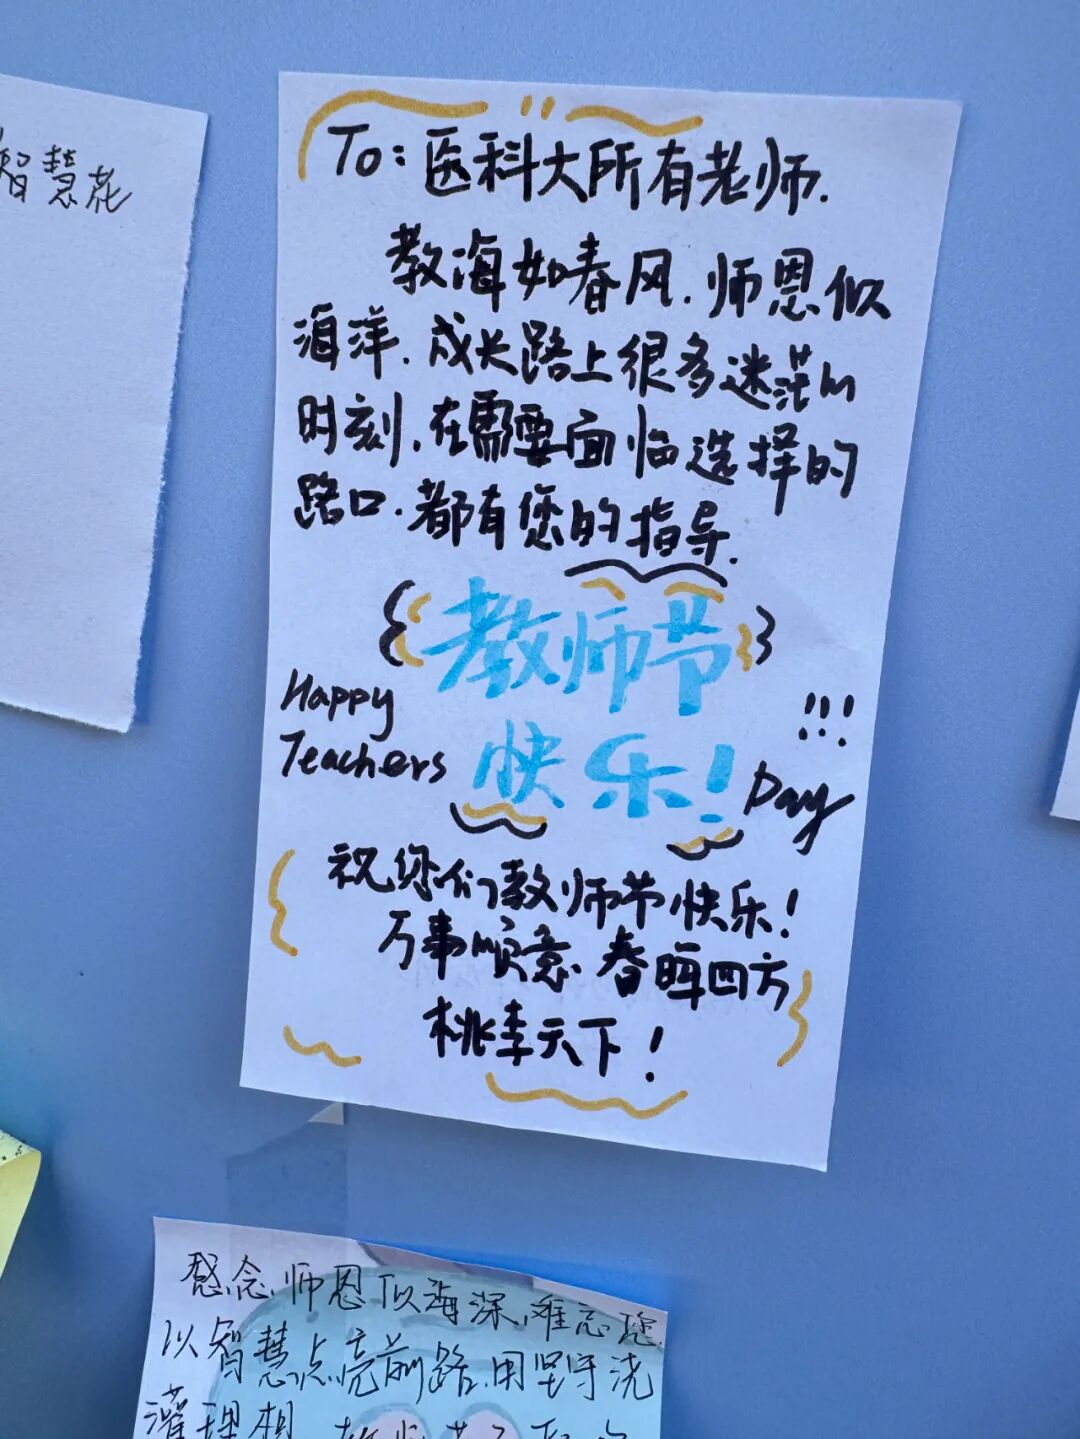 智慧花
To: 医科大所有老师.
教海如春风.师恩似
海洋.成长路上很多迷茫的
时刻.在需要面临选择的
路口.都有您的指导.
教师节
Happy
Teachers
快乐!
!!!
Day
祝您们教师节快乐!
万事顺意 春晖四方
桃李天下!
感念师恩似海深,难忘您
以智慧点亮前路,用坚守浇
灌理想